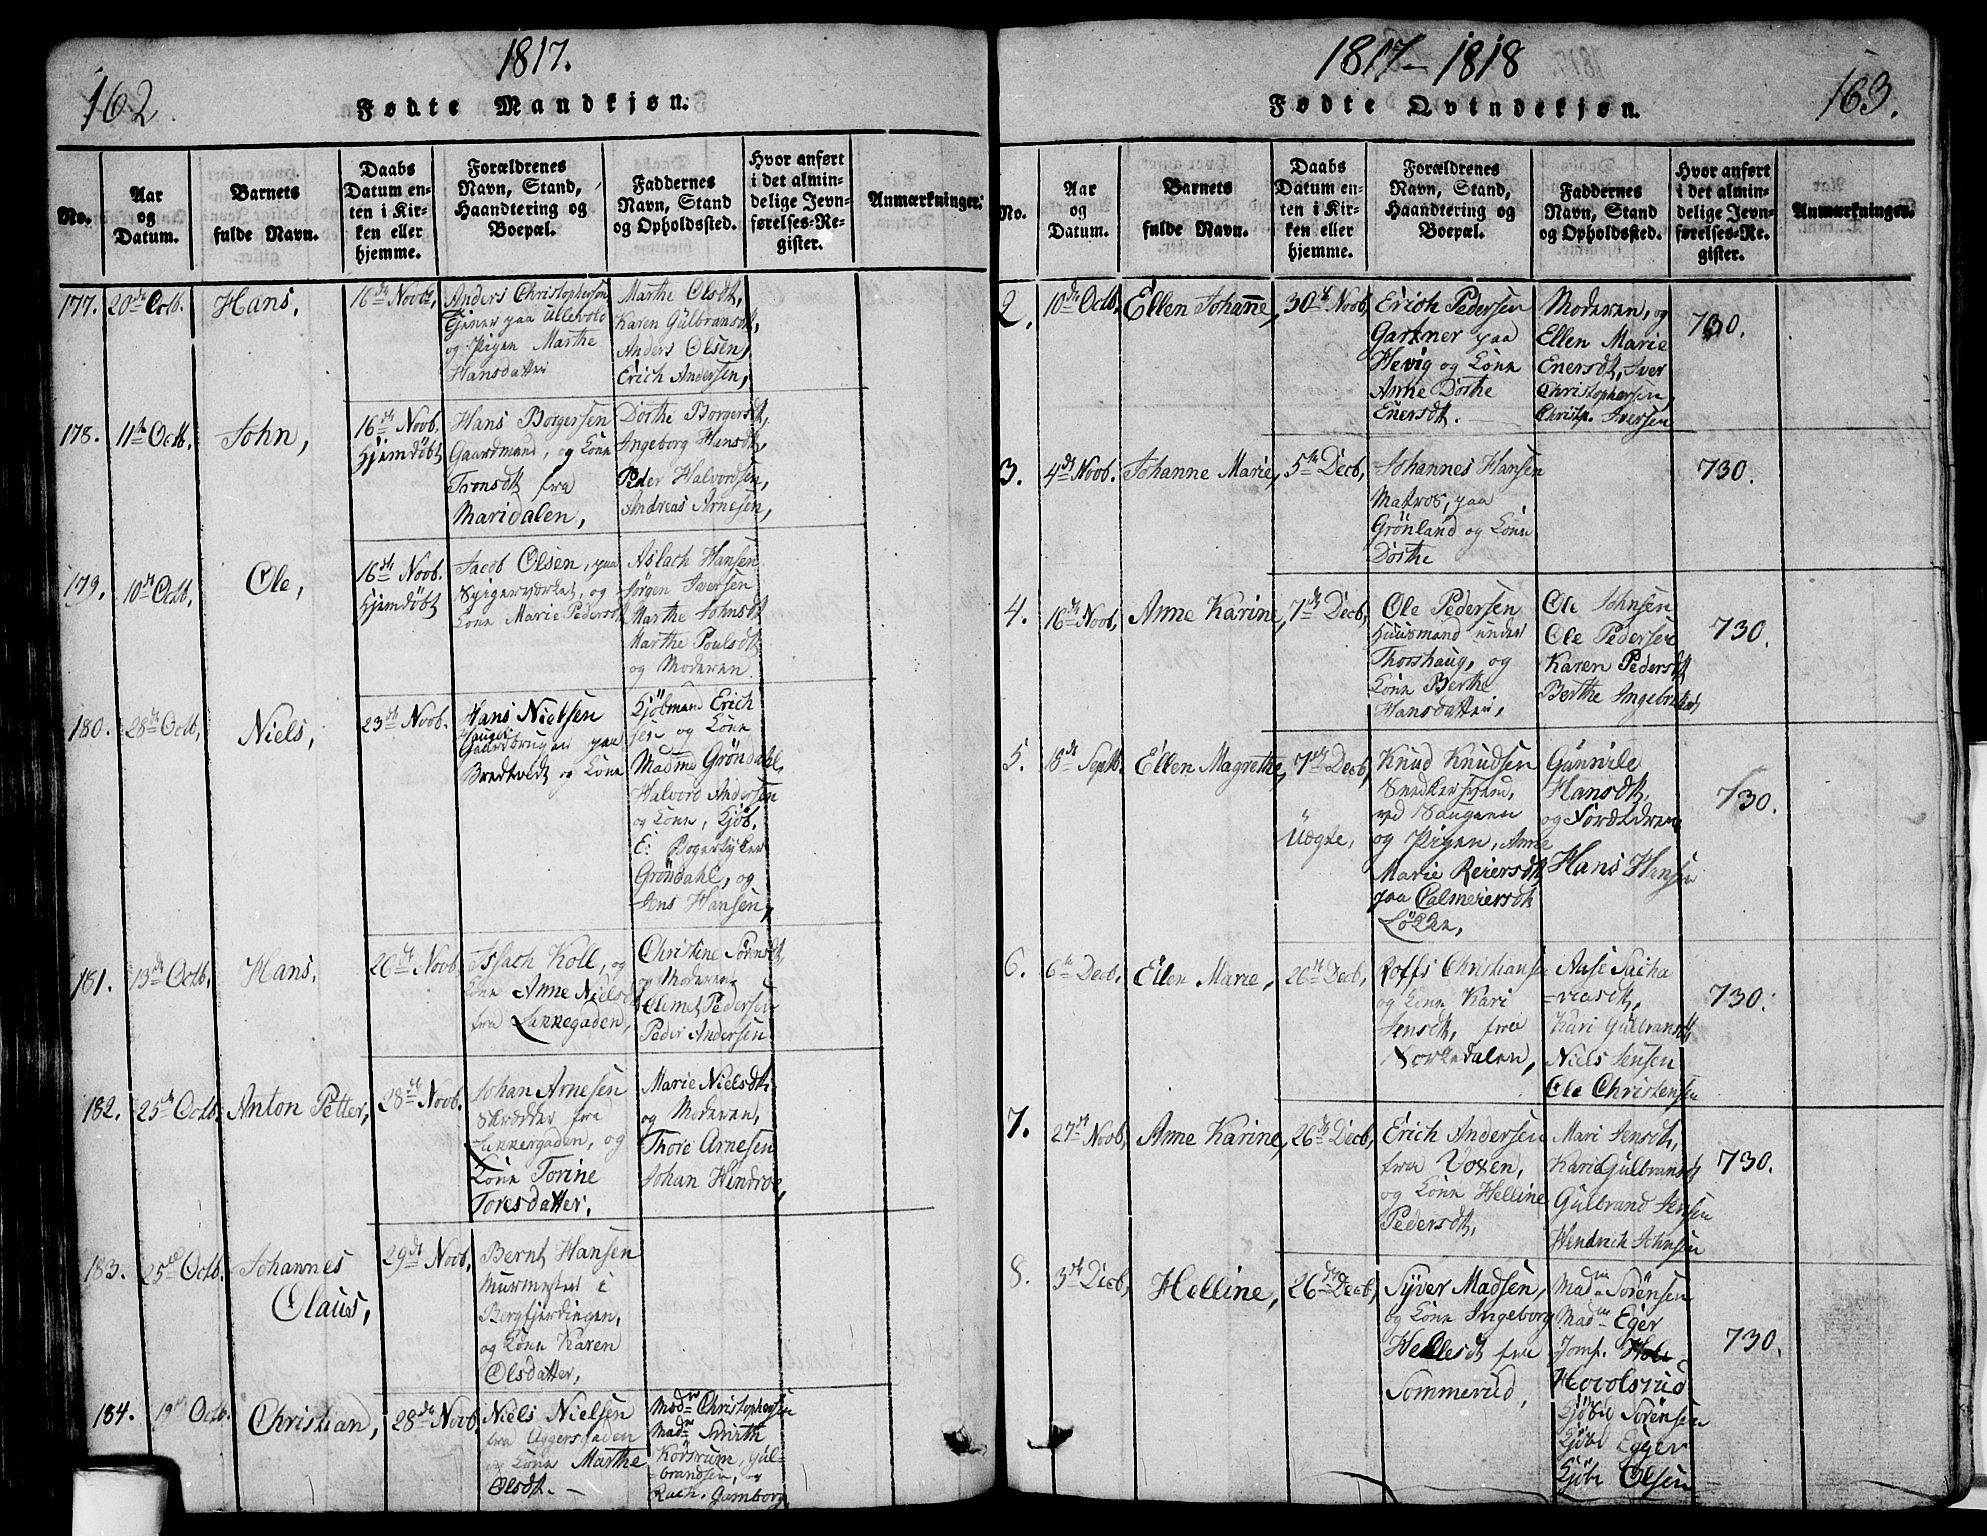 162
1817.
Fødte Mandkjøn.
No.
Aar
og
Datum.
Barnets
fulde Navn.
Daabs
Datum en-
ten i Kir-
ken eller
hjemme.
Forældrenes
Navn, Stand,
Haandtering og
Boepæl.
Faddernes
Navn, Stand
og Opholdssted.
Hvor anført
i det almin-
delige Jevn-
førelses-Re-
gister.
Anmærkninger.
177. 20de Octb. Hans, 16de Novb,
Anders Christophersen
Tjener paa Ullevold
og Pigen Marthe
Hansdatter
Marthe Olsdt,
Karen Gülbransdt,
Anders Olsen,
Erich Andersen,
178. 11te Octb. John, 16de Novb.
Hjemdøbt
Hans Borgersen
Gaardmand, og Kone
Tronsdt fra
Maridalen,
Dorthe Borgersdt,
Ingeborg Hansdt,
Peder Halvordsen,
Andreas Arnesen,
179. 10de Octb. Ole, 16de Novb.
Hjemdøbt
Jacob Olsen, paa
Spigerværket, og
Kone Marie Pedersdt
Aslach Hansen
Jørgen Iversen
Marthe Johnsdt
Marthe Poulsdt
og Moderen.
180. 28de Octb, Niels, 23de Novb.
Hans Nielsen
Gaardbruger paa
Bredtvedt og Kone
Kjöbmand Erich
sen og Kone
Madme Gröndahl,
Halvord Andersen
og Kone, Kjöb.
E: Bogertyker
Gröndahl, og
Jens Hansen,
181. 13de Octb, Hans, 20de Novb
Koll, og
Kone Anne Nielsdt
fra Lakkegaden,
Christine Sörensdt,
og Moderen
Clemet Pedersen
Peder Andersen
182. 25de Octb. Anton Petter, 28de Novb.
Johan Arnesen
Skrædder fra
Lakkergaden, og
Kone Torine
Toresdatter,
Marie Nielsdt,
og Moderen,
Thore Arnesen
Johan
183. 25de Octb. Johannes
Olauss, 29de Novb.
Bernt Hansen
Murmester i
Bergfjerdingen,
og Kone Karen
Olsdatter,
184. 19de Octb. Christian, 28de Novb
Niels Nielsen
fra Aggersgaden
og Kone Marthe
Olsdt.
Madm Christophersen
Madm Smirth
Korsrum, Gül-
brandsen, og
Rach. Gamborg
1817-1818
163.
Fødte Qvindekjøn.
No.
Aar
og
Datum.
Barnets
fulde Navn.
Daabs
Datum en-
ten i Kir-
ken eller
hjemme.
Forældrenes
Navn, Stand,
Haandtering og
Boepæl.
Faddernes
Navn, Stand
og Opholdssted.
Hvor anført
i det almin-
delige Jevn-
førelses-Re-
gister.
Anmærkninger.
2. 10de Octb, Ellen Johanne, 30te Novb,
Erich Pedersen
Gartner paa
Hevig og Kone
Anne Dorthe
Enersdt.
Moderen, og
Ellen Marie
Enersdt, Iver
Christophersen,
Christp. Iversen
730.
3. 4de Novb. Johanne Marie, 5te Decb,
Johannes Hansen
Matros, paa
Grönland og Kone
Dorthe
730.
4. 16de Novb, Anne Karine, 7de Decb,
Ole Pedersen
Huusmand under
Thorshaug, og
Kone Berthe
Hansdatter,
Ole Johnsen
Ole Pedersen
Karen Pedersdt
Berthe Ingebretsdt
730.
5. 18de Septb. Ellen Magrethe, 7de Decb,
Uægte,
Knud Knudsen
Snedkersvend,
ved Saugene
og Pigen, Anne
Marie Reiersdt
paa Calmeiersdt
Lökken,
Gunnile
Hansdt,
og Foreldrene
Hans Hansen
730.
6. 6te Decb, Ellen Marie, 26de Decb,
Roffs Christiansen
og Kone Kari
Jensdt, fra
Sorkedalen,
Aase Sacha
=riasdt,
Kari Gülbransdt
Niels Jensen
Ole Christensen
730.
7. 27de Novb, Anne Karine, 26de Decb,
Erich Andersen
fra Voxen,
og Kone Helline
Pedersdt,
Mari Jensdt,
Kari Gülbransdt
Gülbrand Jensen
Hendrich Johnsen
730.
8. 3de Decb, Helline, 26de Decb,
Syver Madsen,
og Kone Ingeborg
Hellesdt fra
Sommerud,
Madm Sörensen
Madm Eger
Jomf. Hole
Hovolsrud
Kjöbm Sörensen
Kjöbm Egger
Kjöbm Olsen
730.